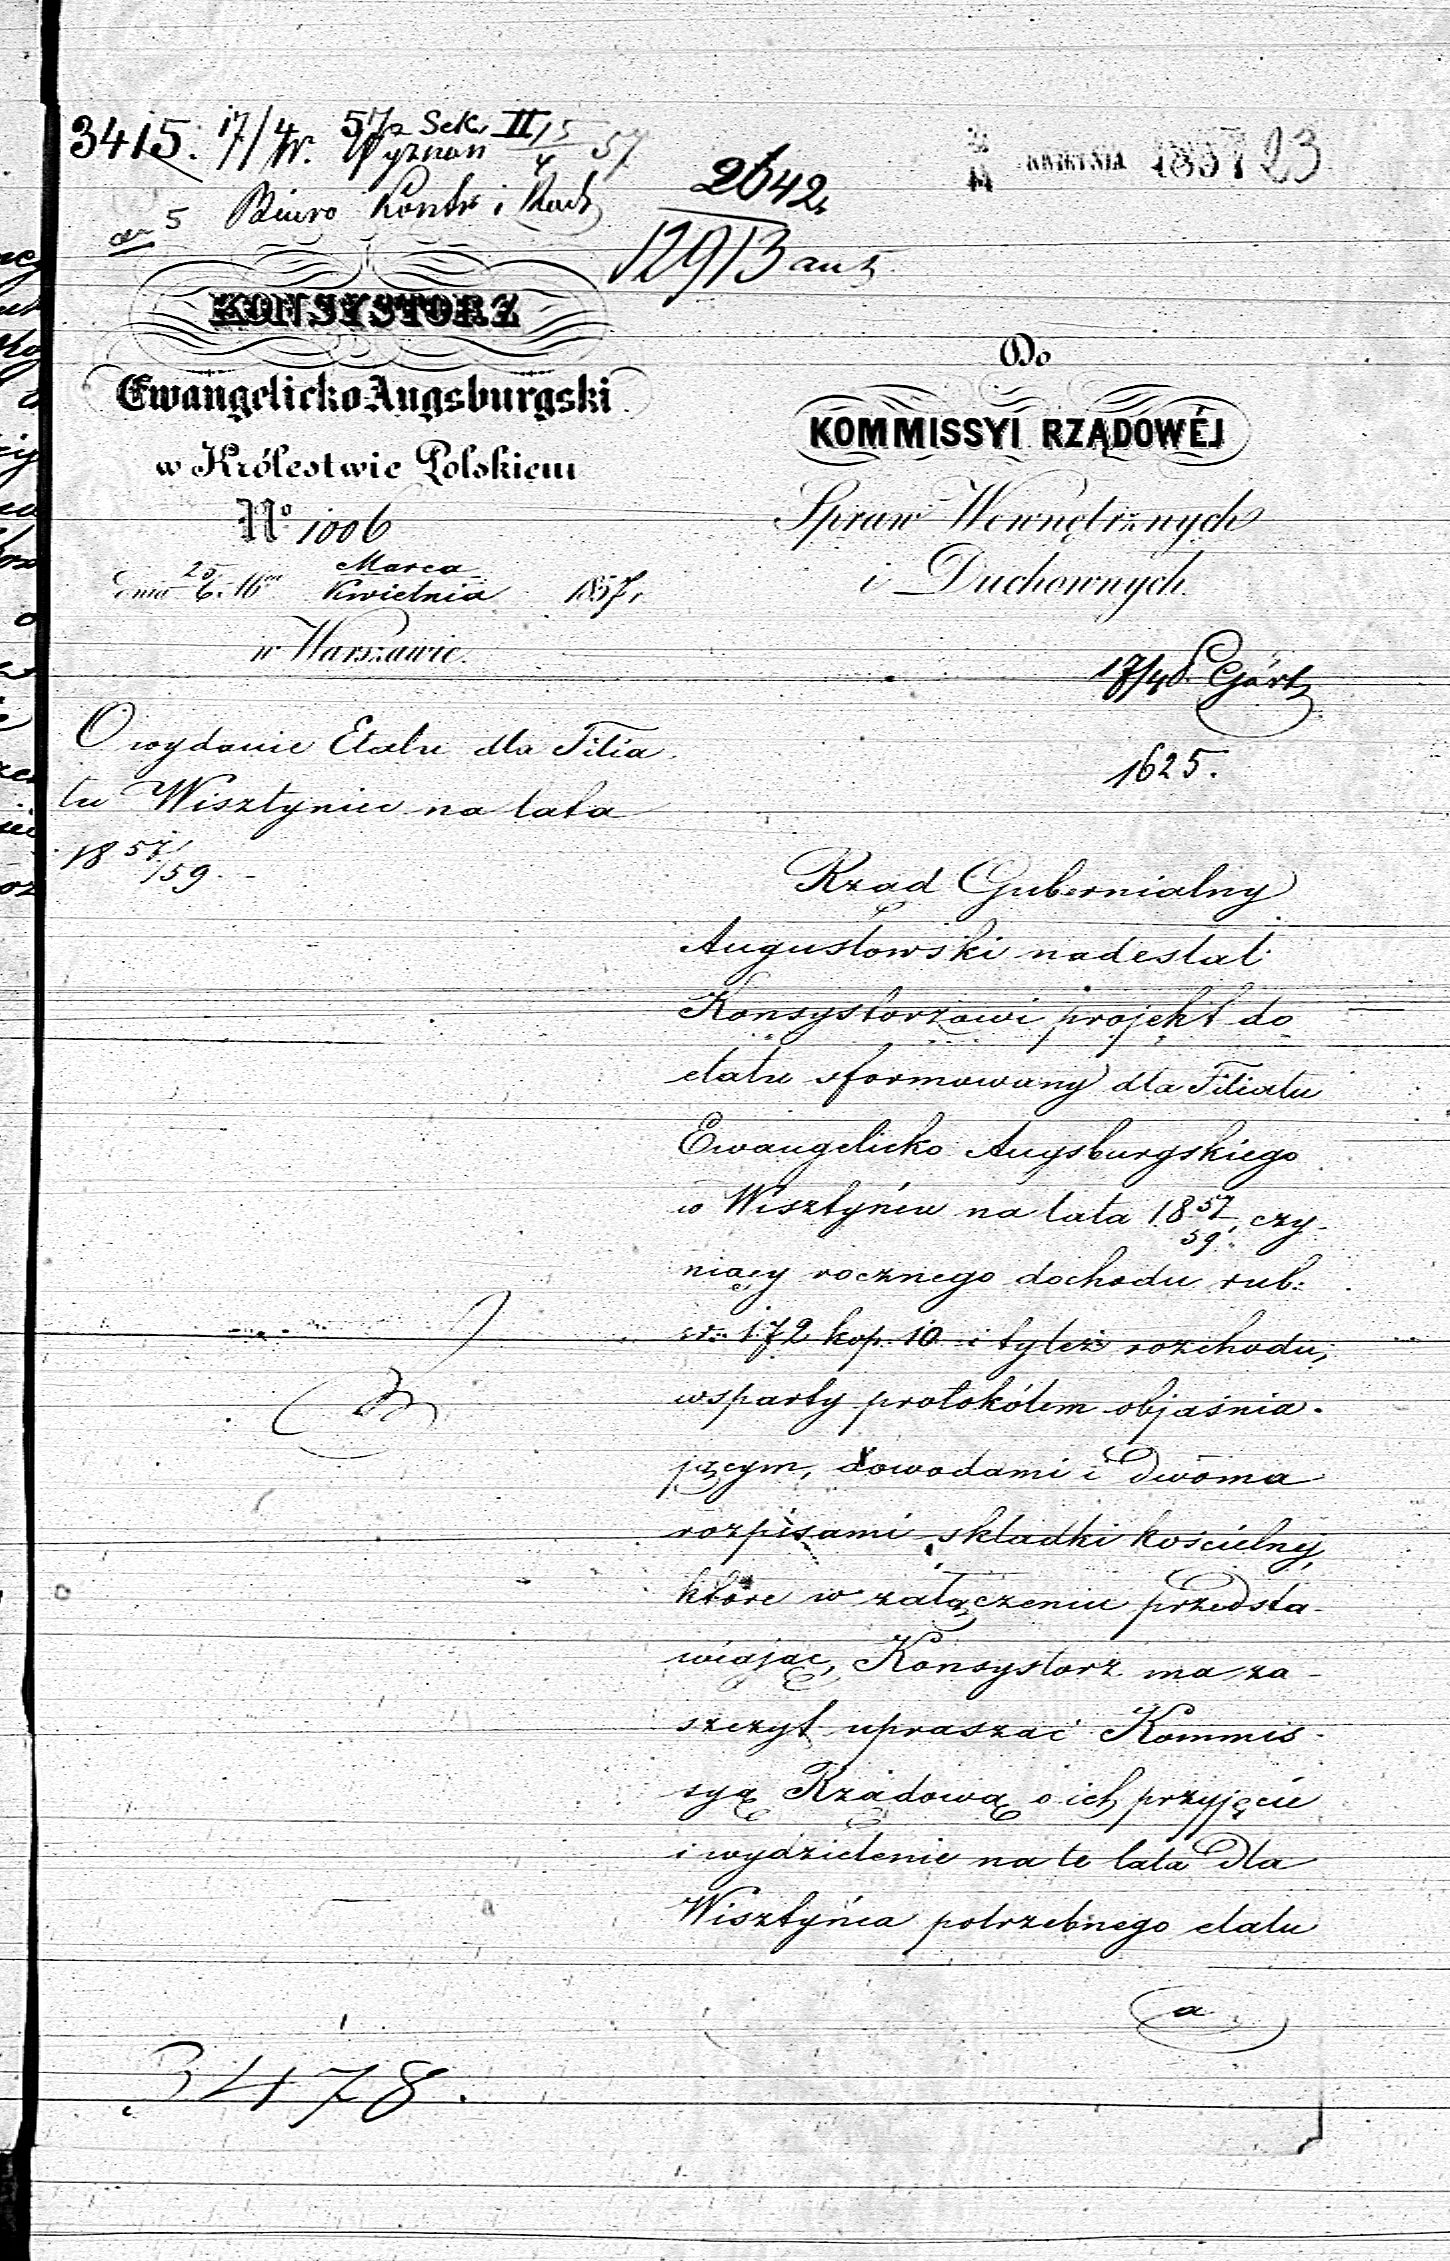 3415. 17/4 r. 57 Sek. II 15/4 57
Wyznań
Biuro Kontr i Rach
2642
12913 an 5
KWIETNIA 1857 23
KONSYSTORZ
Ewangelicko Augsburgski
w Królestwie Polskiem
No 1006
dnia 25/6 Marca/Kwietnia 1857 r.
w Warszawie.
Do
KOMMISSYI RZĄDOWÉJ
Spraw Wewnętrznych
i Duchownych.
17/4
1625.
O wydanie Etatu dla Filia
łu Wisztyniec na lata
18 57/59. -
Rząd Gubernialny
Augustowski nadesłał
Konsystorzowi projekt do
etatu sformowany dla Filiału
Ewangelicko Augsburgskiego
w Wisztyńcu na lata 18 57/59, czy-
niący rocznego dochodu rub:
sr: 172 kop. 10 i tyleż rozchodu,
wsparty protokółem objaśnia-
jącym, dowodami i dwoma
rozpisami składki kościelnej,
które w załączeniu przedsta-
wiając, Konsystorz ma za-
szczyt upraszać Kommis-
syą Rządową o ich przyjęcie
i wydzielenie na te lata dla
Wisztyńca potrzebnego etatu
a
3478.